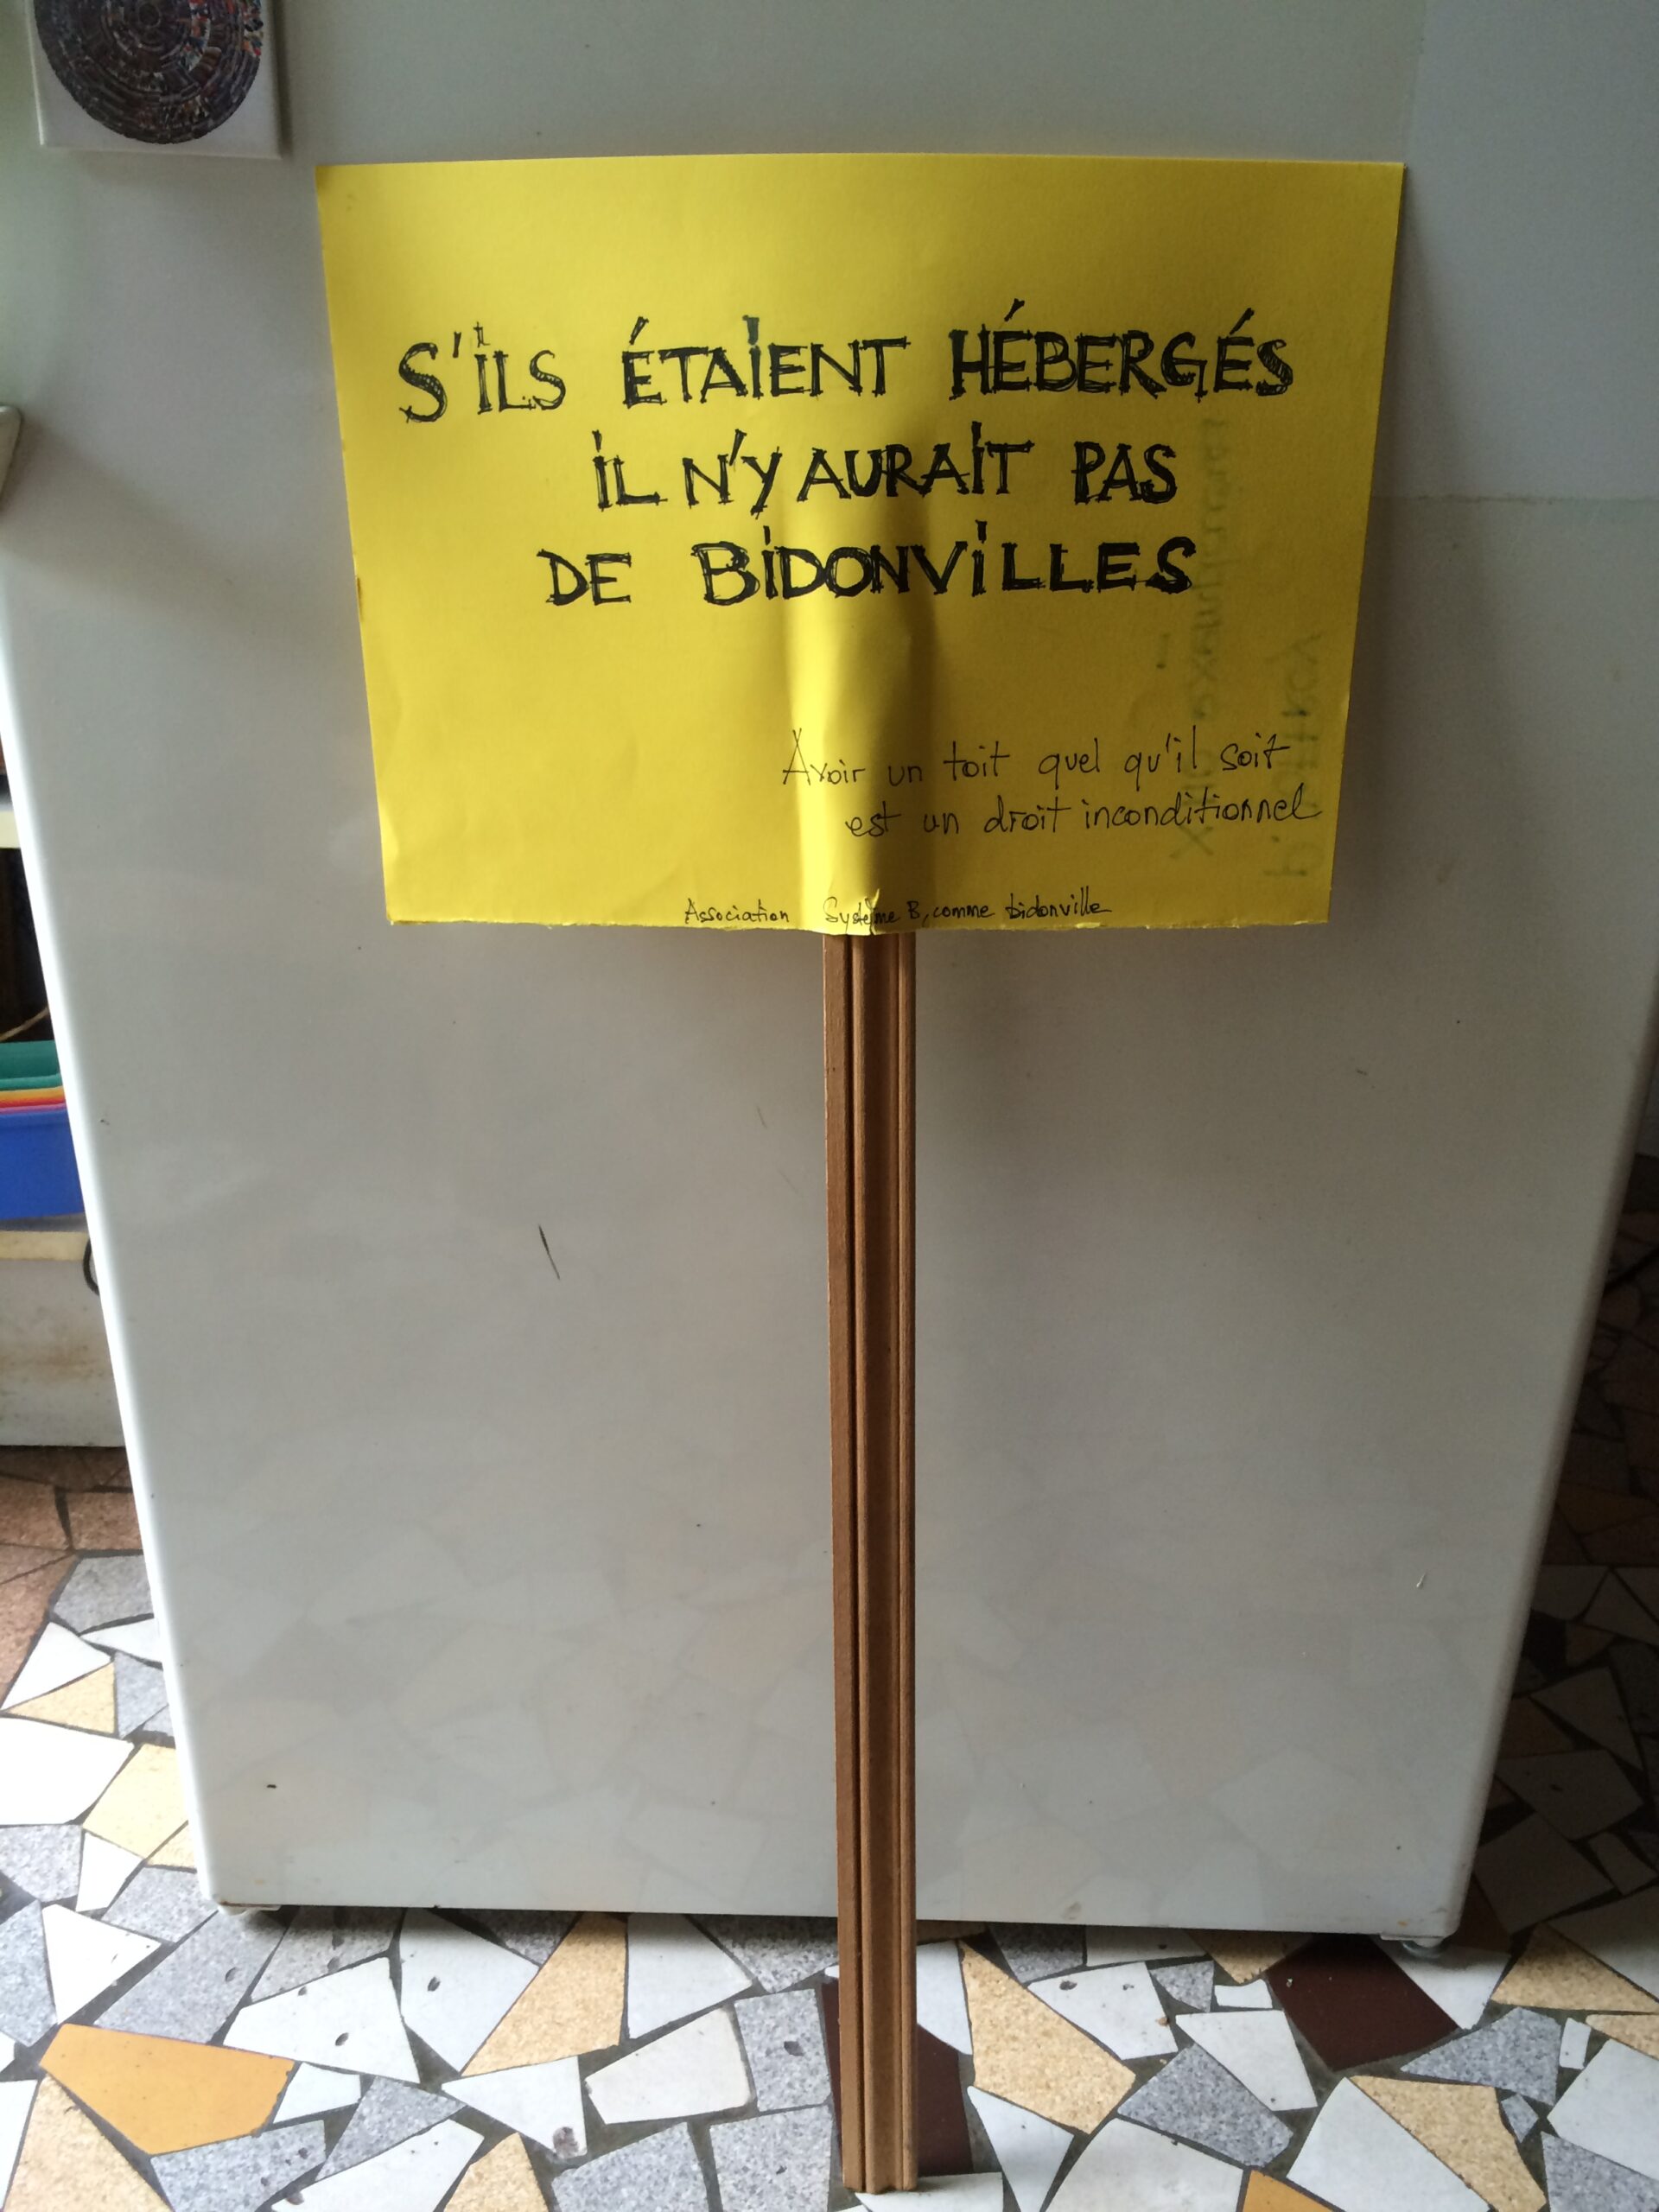 S'ILS ÉTAIENT HÉBERGÉS
IL N'Y AURAIT PAS
DE BIDONVILLES
Avoir un toit quel qu'il soit
est un droit inconditionnel
Association Système B, comme bidonville